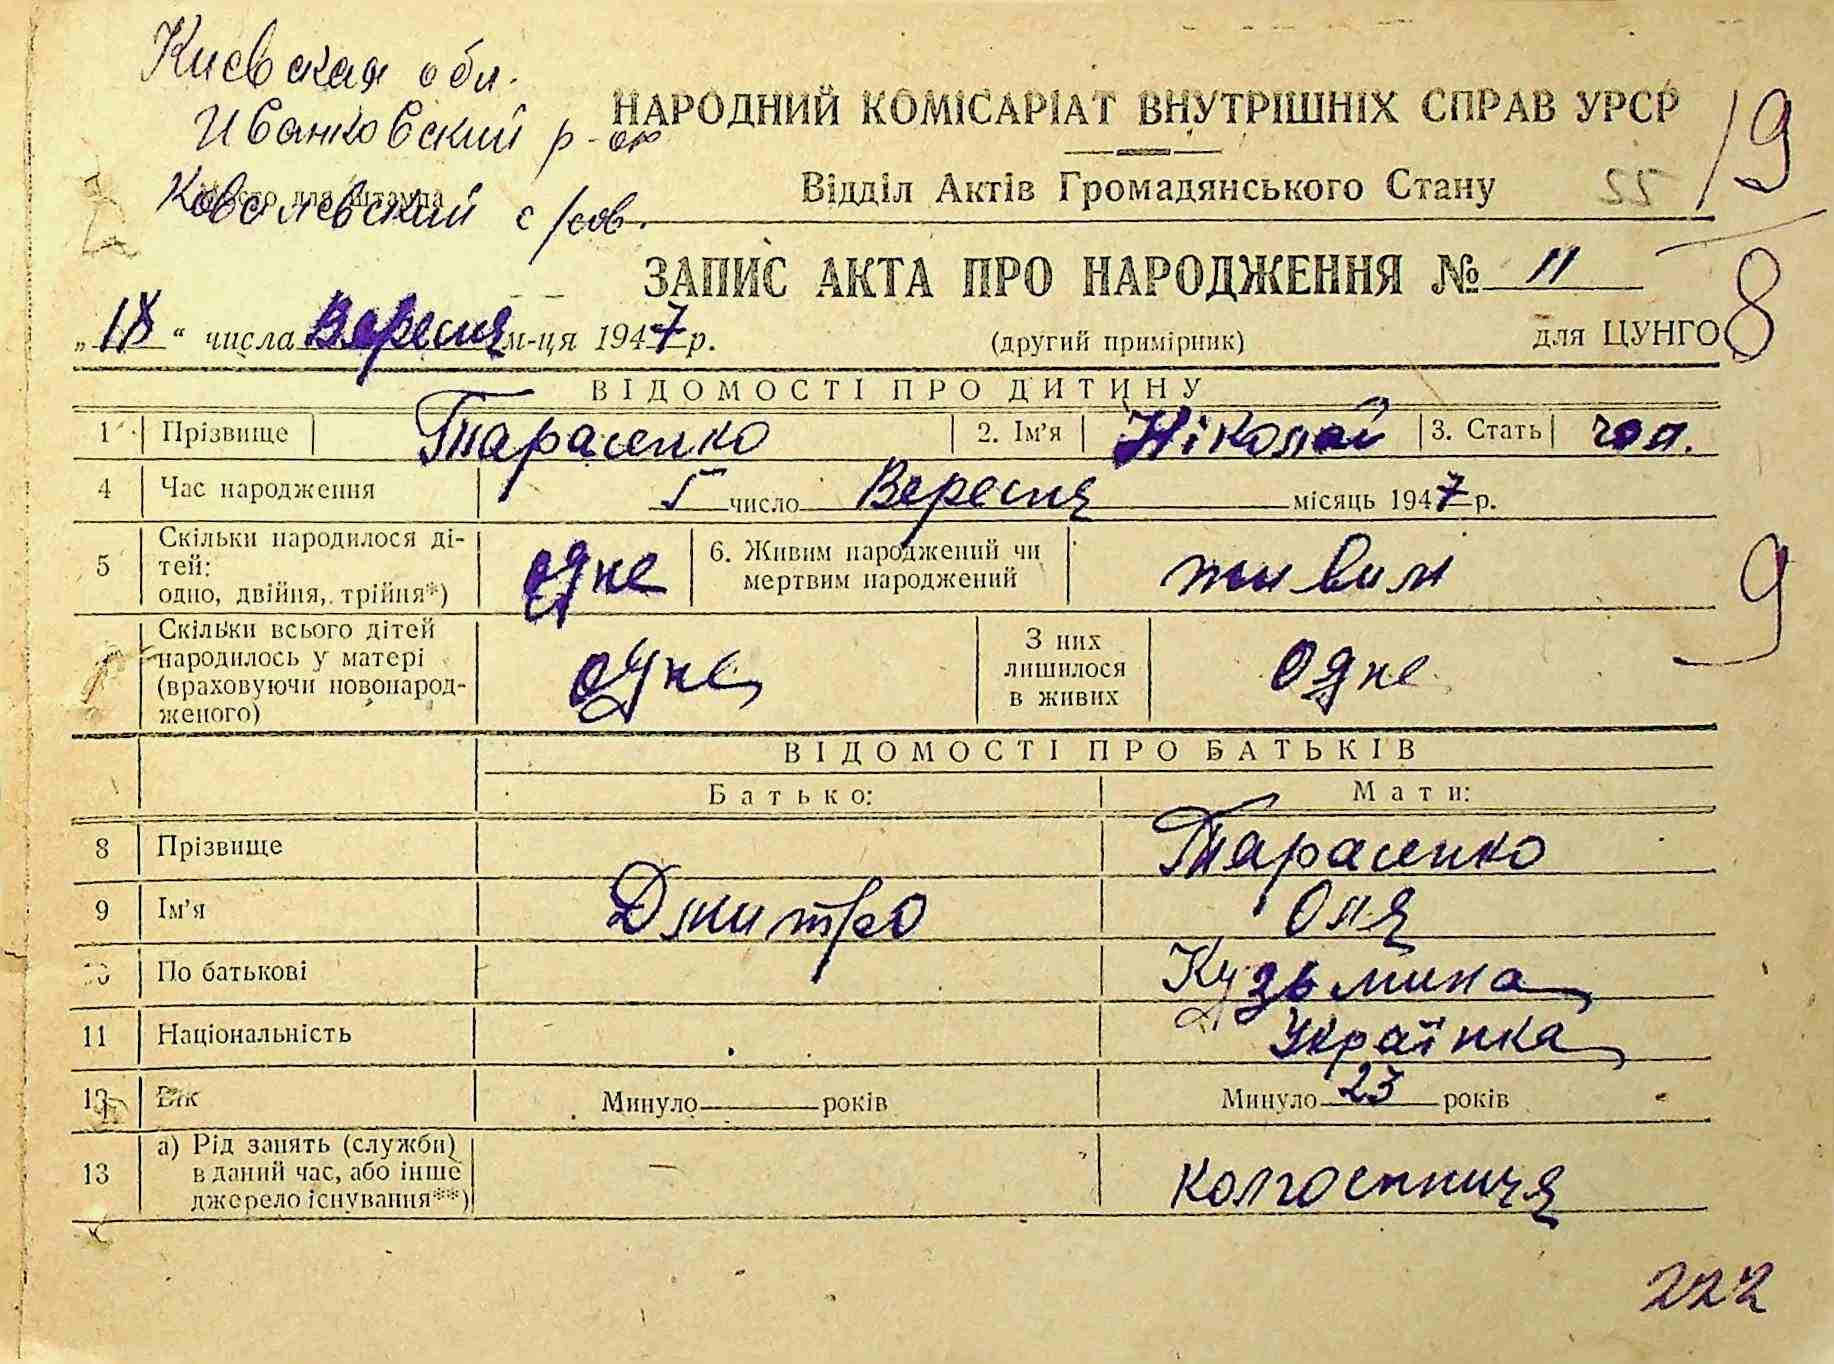 Киевская обл.
Иванковский р-он
Место для штампа
Ковалевский с/сов.
НАРОДНИЙ КОМІСАРІАТ ВНУТРІШНІХ СПРАВ УРСР
19
Відділ Актів Громадянського Стану
22
ЗАПИС АКТА ПРО НАРОДЖЕННЯ № 11
8
„IX“ числа Вересня м-ця 1947 р. (другий примірник) для ЦУНГО
ВІДОМОСТІ ПРО ДИТИНУ
1 Прізвище Тарасенко 2. Ім'я Ніколай 3. Стать чол.
4 Час народження 5 число Вересня місяць 1947 р.
5 Скільки народилося дітей: одно, двійня, трійня*) одне 6. Живим народжений чи мертвим народжений живим
9
Скільки всього дітей народилось у матері (враховуючи новонародженого) одне З них лишилося в живих Одне
ВІДОМОСТІ ПРО БАТЬКІВ
Батько: Мати:
8 Прізвище Тарасенко
9 Ім'я Дмитро Оля
10 По батькові Кузьмина
11 Національність Українка
12 Вік Минуло років Минуло 23 років
13 а) Рід занять (служби) в даний час, або інше джерело існування**) — колгоспниця
222